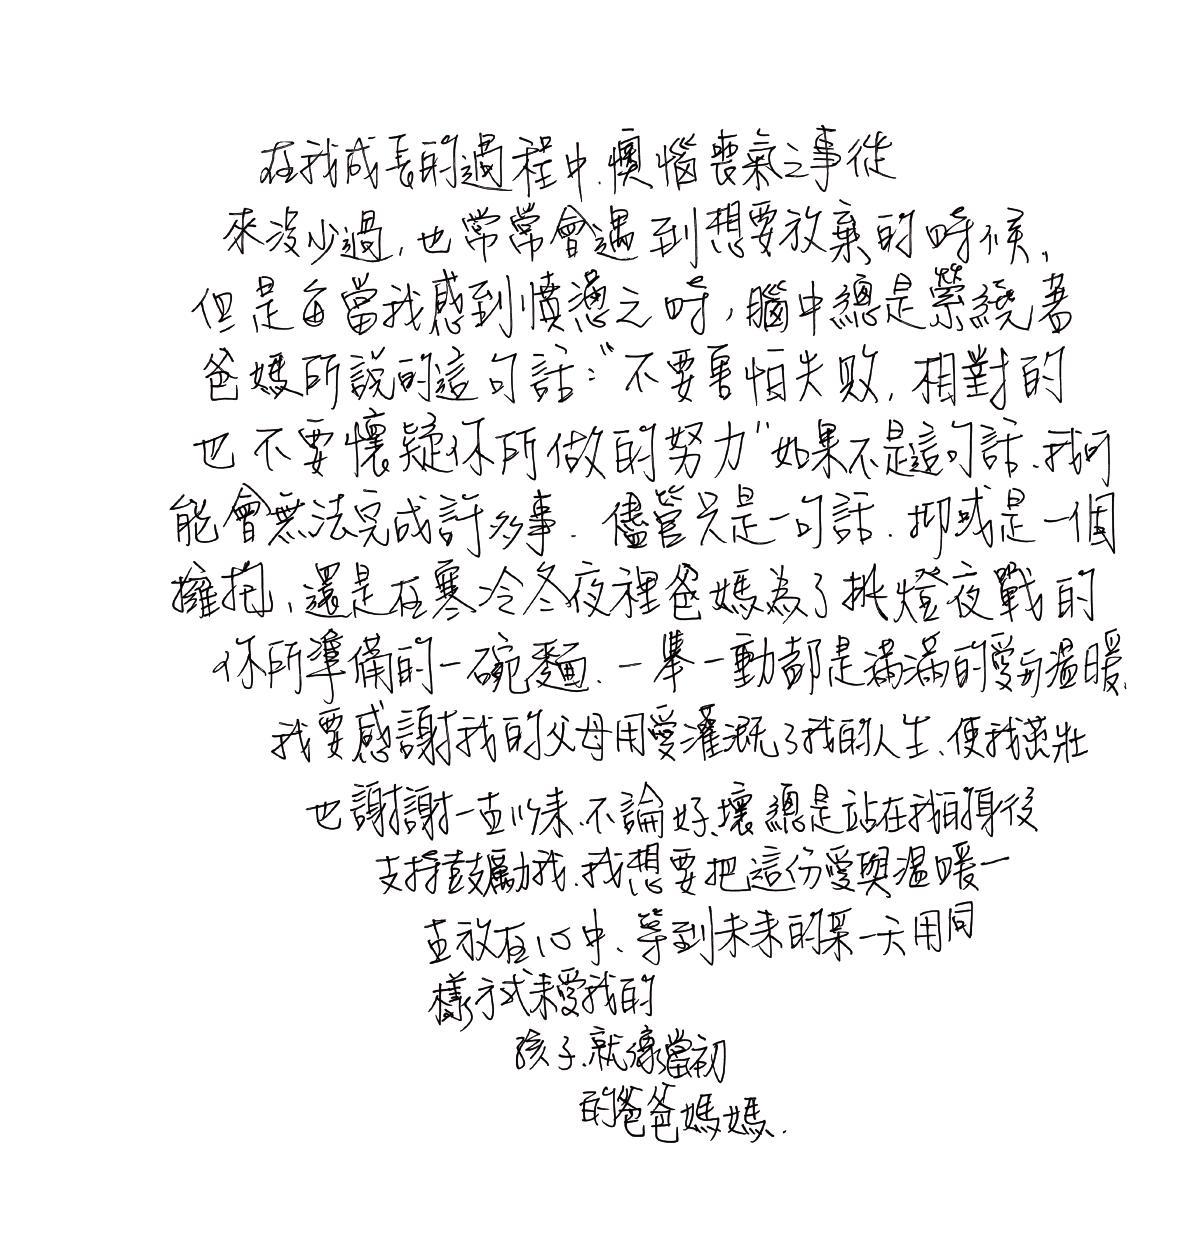 在我成長的過程中、懊惱喪氣之事從
來沒少過，也常常會遇到想要放棄的時候，
但是每當我感到憤懣之時，腦中總是縈繞著
爸媽所說的這句話："不要害怕失敗，相對的
也不要懷疑你所做的努力"如果不是這句話、我可
能會無法完成許多事．儘管只是一句話．抑或是一個
擁抱，還是在寒冷冬夜裡爸媽為了挑燈夜戰的
你所準備的一碗麵、一舉一動都是滿滿的愛與溫暖、
我要感謝我的父母用愛灌溉了我的人生、使我茁壯
也謝謝一直以來、不論好、壞總是站在我的身後
支持鼓勵我、我想要把這份愛與溫暖一
直放在心中、等到未來的某一天用同
樣方式來愛我的
孩子、就像當初
的爸爸媽媽．